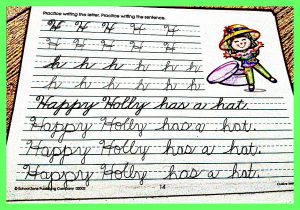 Practice writing the letter. Practice writing the sentence.
H H H H H
H H H H H
h h h h h h
h h h h h h
Happy Holly has a hat.
Happy Holly has a hat.
Happy Holly has a hat.
Happy Holly has a hat.
©School Zone Publishing Company
14